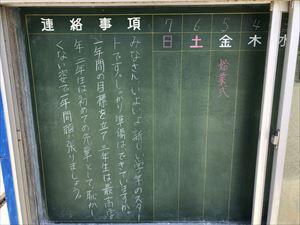 連絡事項
7 6 5 4
日 土 金 木 水
始業式
みなさん いよいよ 新しい学年のスター
トです。しっかり準備はできていますか。
一年間の目標を立て 三年生は最高学
年、二年生は初めての先輩として恥かし
くない姿で一年間頑張りましょう。